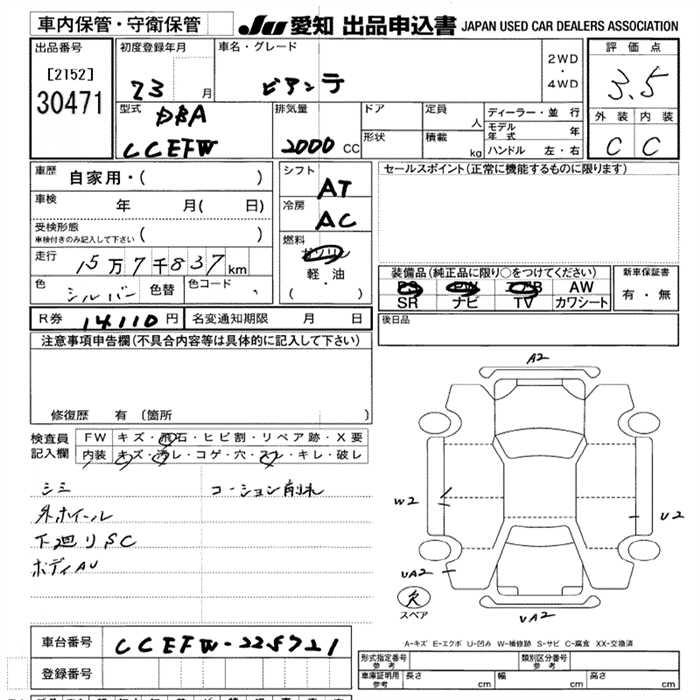 車内保管・守衛保管
JU 愛知 出品申込書 JAPAN USED CAR DEALERS ASSOCIATION
出品番号
[2152]
30471
初度登録年月
23 月
車名・グレード
ビアンテ
2WD
・
4WD
評価点
3.5
外装 内装
C C
型式 DBA
CCEFW
排気量
2000 CC
ドア
形状
定員 人
積載 kg
ディーラー・並行
モデル年式 年
ハンドル 左・右
車歴 自家用・( )
車検 年 月( 日)
受検形態
車検付きのみ記入して下さい ( )
走行 15万7千837km
色 シルバー 色替 色コード
シフト AT
冷房 AC
燃料 ガソリン
軽・油
( ・ )
セールスポイント(正常に機能するものに限ります)
装備品(純正品に限り○をつけてください)
PS PW エアB AW
SR ナビ TV カワシート
新車保証書
有・無
R券 14110円 名変通知期限 月 日
後日品
注意事項申告欄(不具合内容等は具体的に記入して下さい)
修復歴 有(箇所
検査員記入欄
FW キズ・飛石・ヒビ割・リペア跡・X要
内装 キズ・汚レ・コゲ・穴・スレ・キレ・破レ
シミ
コーション削れ
外ホイール
下廻りSC
ボディAU
A2
W2
U2
UA2
UA2
欠
スペア
A-キズ E-エクボ U-凹み W-補修跡 S-サビ C-腐食 XX-交換済
車台番号 CCEFW-225721
登録番号
形式指定番号 参考
類別区分番号 参考
車庫証明用 参考 長さ cm 幅 cm 高さ cm